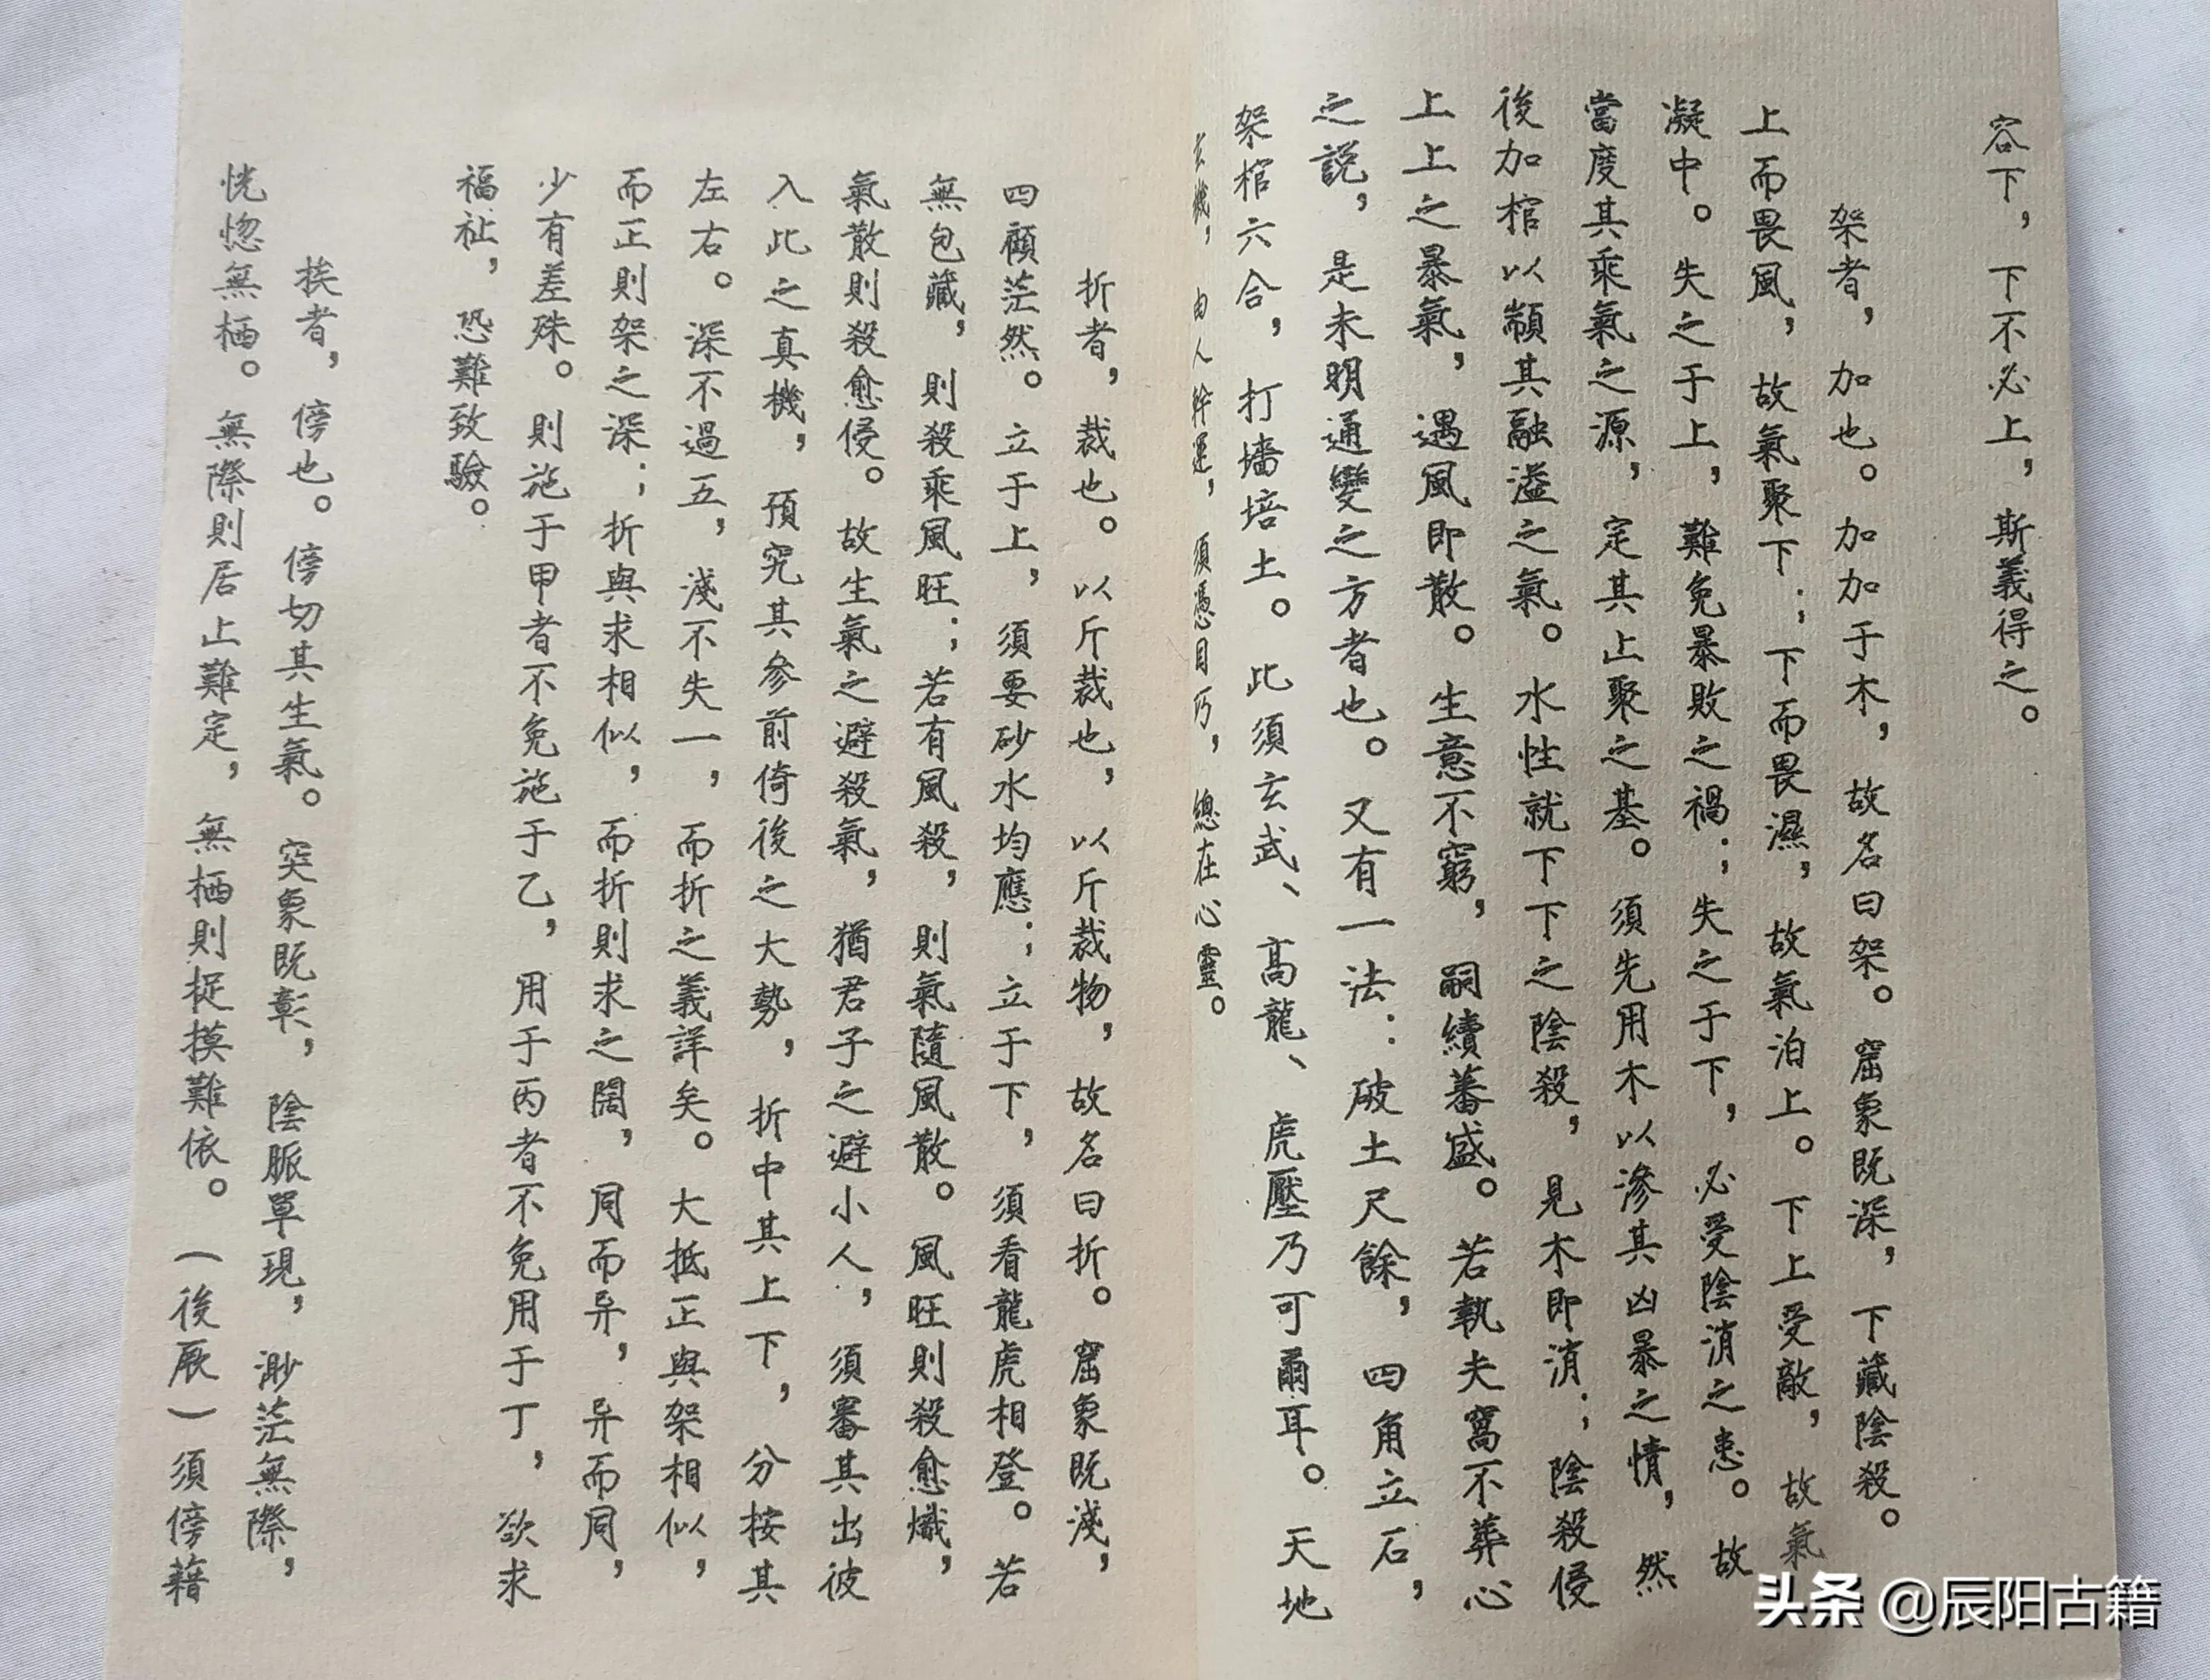 容下，下不必上，斯義得之。
架者，加也。加加于木，故名曰架。窟象既深，下藏陰殺。
上而畏風，故氣聚下；下而畏濕，故氣泊上。下上受敵，故氣
凝中。失之于上，難免暴敗之禍；失之于下，必受陰消之患。故
當度其乘氣之源，定其上聚之基。須先用木以滲其凶暴之情，然
後加棺以顓其融溢之氣。水性就下下之陰殺，見木即消；陰殺侵
上上之暴氣，遇風即散。生意不窮，嗣續蕃盛。若執夫窩不葬心
之説，是未明通變之方者也。又有一法：破土尺餘，四角立石，
架棺六合，打墻培土。此須玄武、高龍、虎壓乃可爾耳。天地
玄機，由人幹運，須憑目巧，總在心靈。
折者，裁也。以斤裁也，以斤裁物，故名曰折。窟象既淺，
四顧茫然。立于上，須要砂水均應；立于下，須看龍虎相登。若
無包藏，則殺乘風旺；若有風殺，則氣隨風散。風旺則殺愈熾，
氣散則殺愈侵。故生氣之避殺氣，猶君子之避小人，須審其出彼
入此之真機，預究其參前倚後之大勢，折中其上下，分按其
左右。深不過五，淺不失一，而折之義詳矣。大抵正與架相似，
而正則架之深；折與求相似，而折則求之闊，同而异，异而同，
少有差殊。則施于甲者不免施于乙，用于丙者不免用于丁，欲求
福祉，恐難致驗。
挨者，傍也。傍切其生氣。突象既彰，陰脈單現，渺茫無際，
恍惚無栖。無際則居上難定，無栖則捉摸難依。（後厥）須傍藉
头条 @辰阳古籍